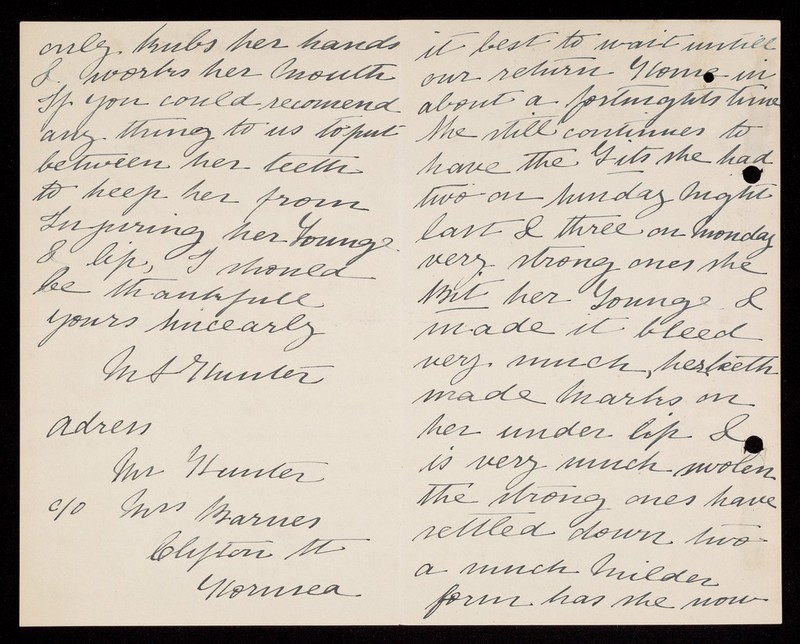 only. Rubs her hands
& works her Mouth
If you could recomend
any thing to us to put
between her teeth
to keep her from
Injuring her Tounge
& lip, I should
be thankfull
yours Sincearly
M S Hunter
Adress
Mr Hunter
c/o Mrs Barnes
Clifton St
Hornsea
it best to wait untill
our return Home in
about a fortnights time
She still continues to
have the Fits she had
two on Sunday Night
last & three on Monday
very strong ones she
Bit her Tounge &
made it bleed
very much, her teeth
made Marks on
her under lip &
is very much swolen
the strong ones have
settled down two
a much Milder
form has she now